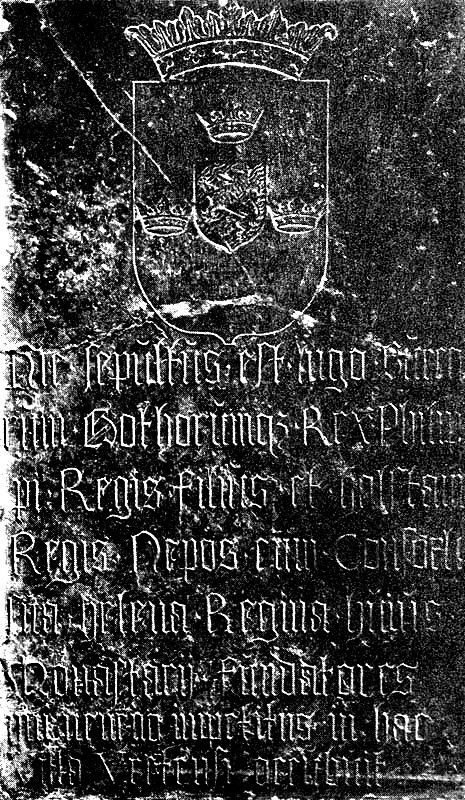 Hic sepultus · est · ingo · Sueco
rum · Gothorumqz · Rex Philip
pi · Regis · filius · et · halstani
Regis · Nepos · cum · Consorte
sua · helena · Regina · huius ·
Monasterij · fundatores
in hac